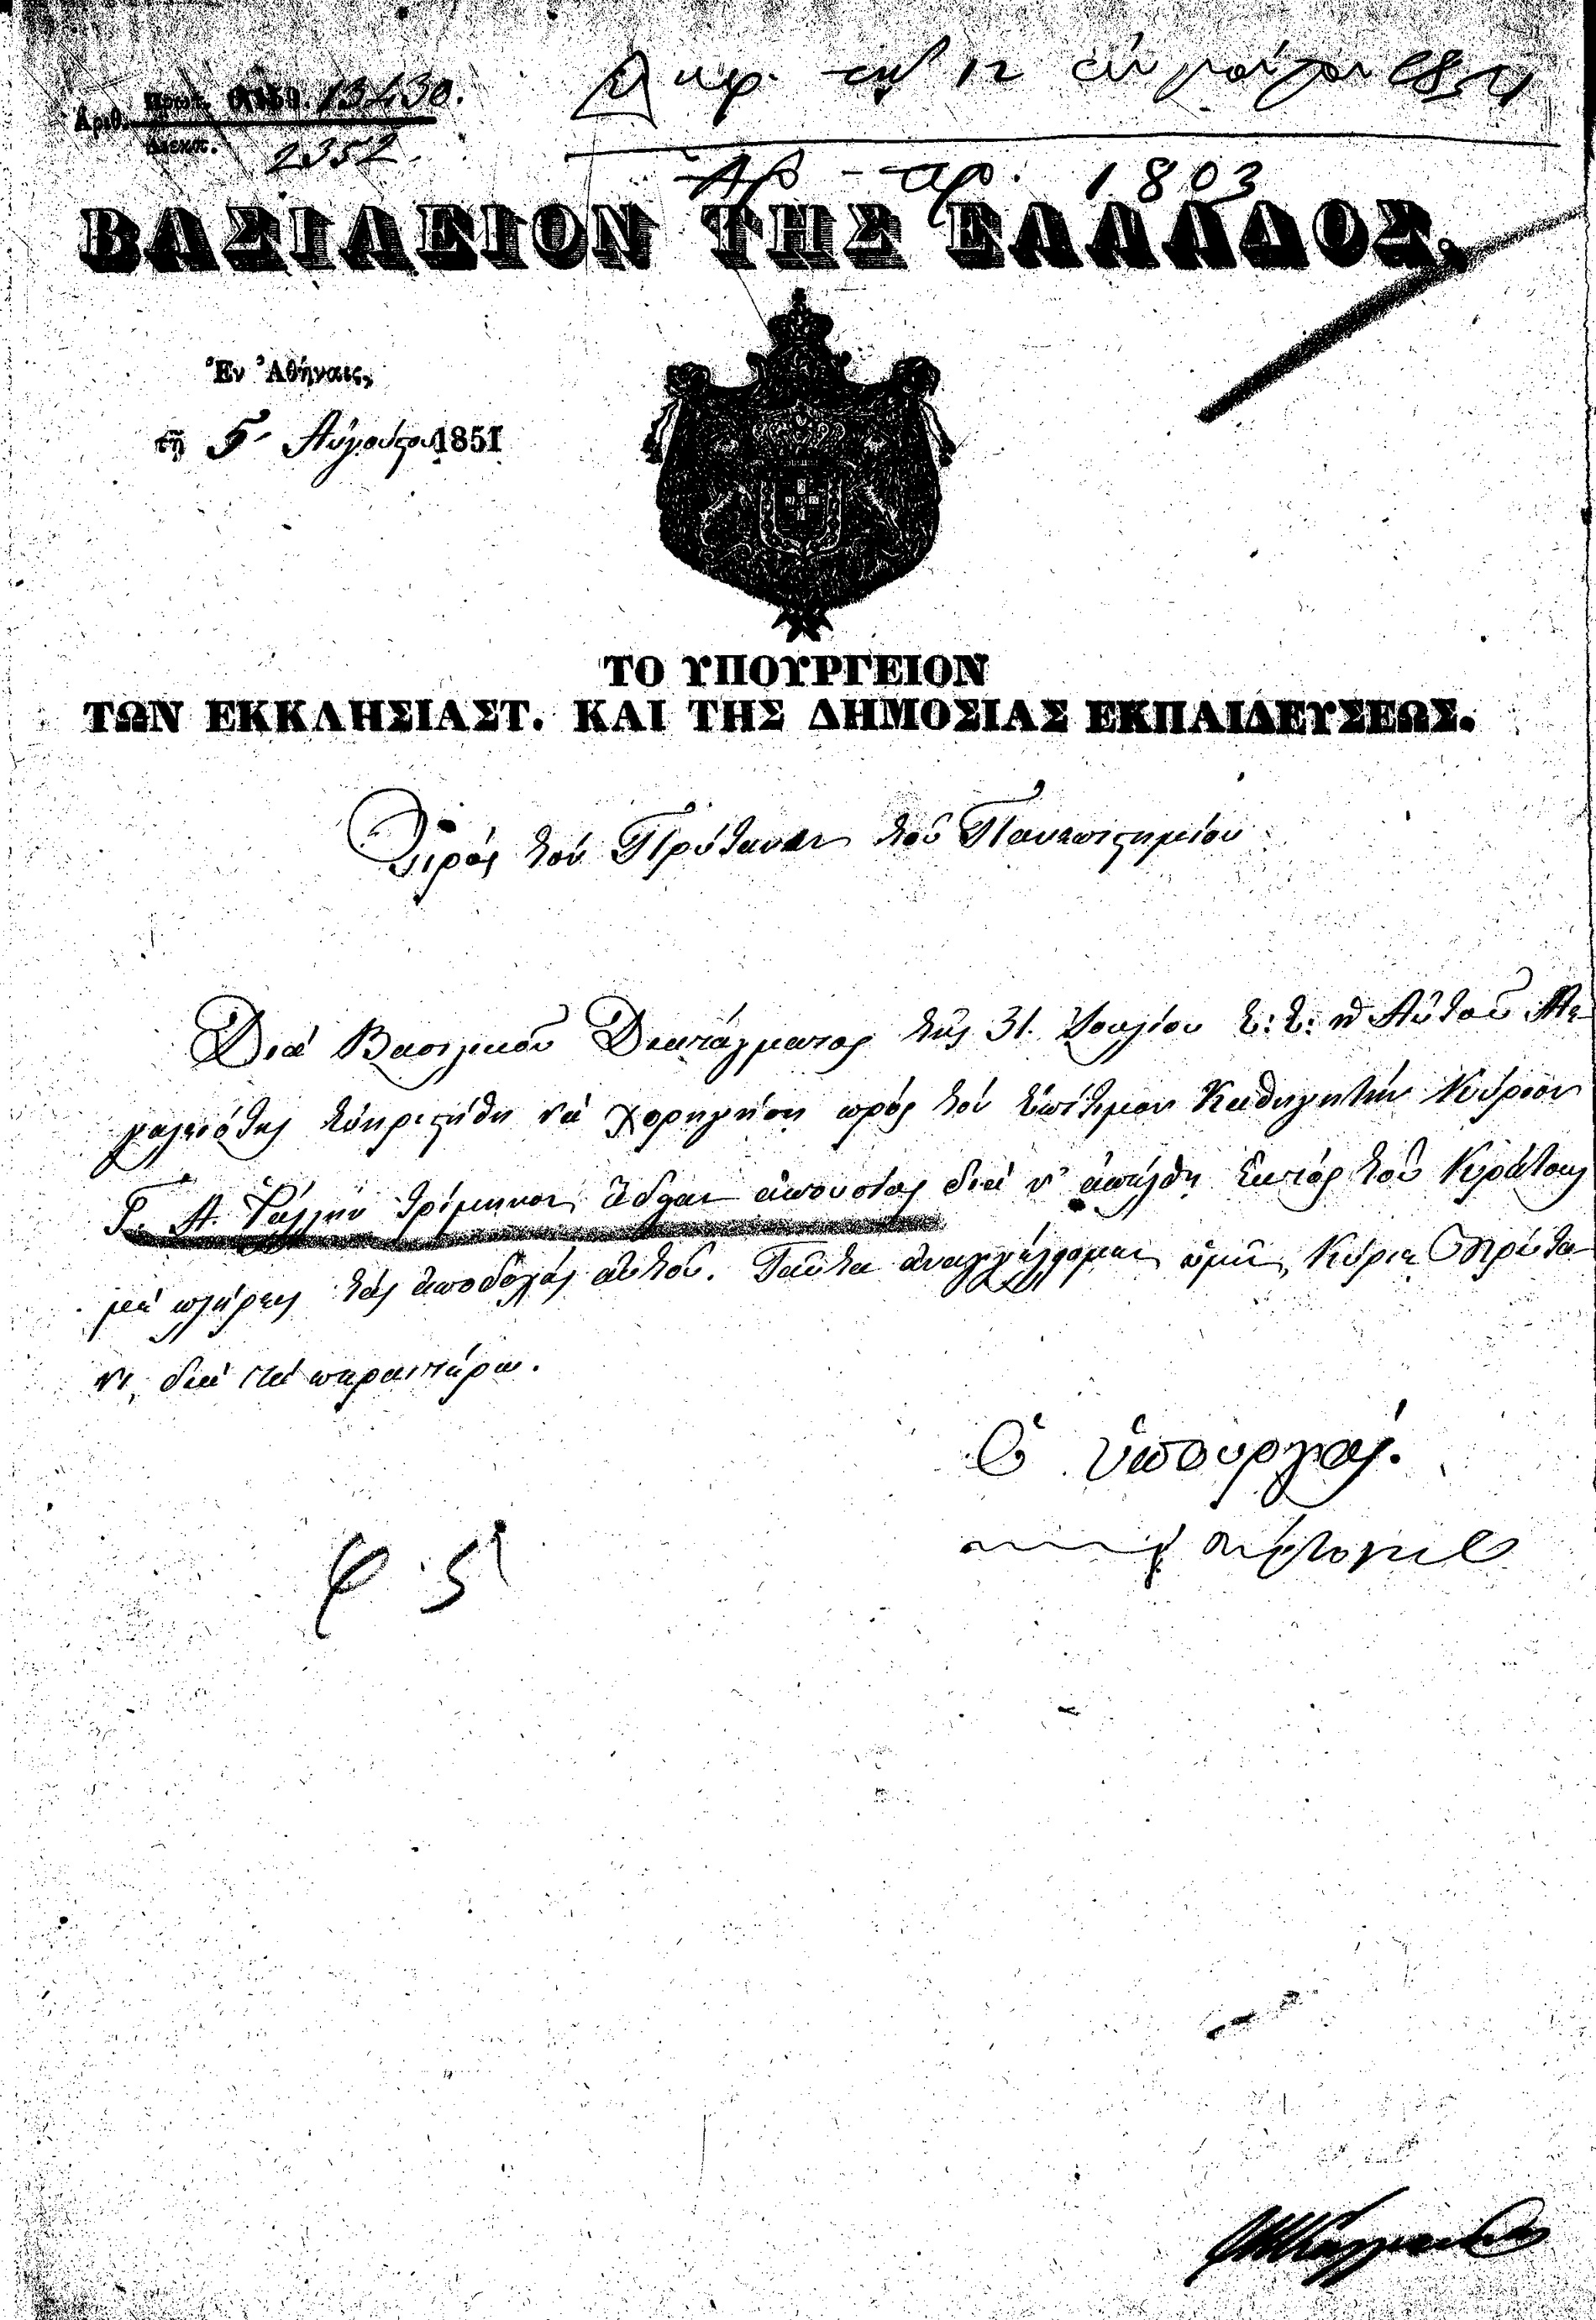 Ἀριθ. Πρωτ. 13430.
Διεκπ. 2352.
τὴν 12 αὐγούστου 1851
Ἀρ. πρ. 1803
ΒΑΣΙΛΕΙΟΝ ΤΗΣ ΕΛΛΑΔΟΣ.
Ἐν Ἀθήναις,
τῇ 5 Αὐγούστου 1851
ΤΟ ΥΠΟΥΡΓΕΙΟΝ
ΤΩΝ ΕΚΚΛΗΣΙΑΣΤ. ΚΑΙ ΤΗΣ ΔΗΜΟΣΙΑΣ ΕΚΠΑΙΔΕΥΣΕΩΣ.
Πρός τόν Πρύτανιν τοῦ Πανεπιστημίου
Διά Βασιλικοῦ Διατάγματος τῆς 31 Ἰουλίου ἔ. ἔ. ἡ Αὐτοῦ Με-
γαλειότης εὐηρεστήθη νά χορηγήσῃ πρός τόν ἐπίτιμον Καθηγητήν Κύριον
Γ. Α. Ῥάλλην τρίμηνον ἄδειαν ἀπουσίας διά ν' ἀπέλθῃ ἐκτός τοῦ Κράτους
μέ πλήρεις τάς ἀποδοχάς αὐτοῦ. Ταῦτα ἀναγγέλλομεν ὑμῖν, Κύριε Πρύτα-
νι, διά τά περαιτέρω.
Ὁ ὑπουργός.